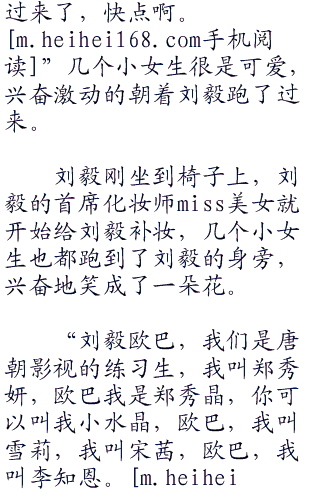 过来了，快点啊。
[m.heihei168.com手机阅
读]”几个小女生很是可爱，
兴奋激动的朝着刘毅跑了过
来。
刘毅刚坐到椅子上，刘
毅的首席化妆师miss美女就
开始给刘毅补妆，几个小女
生也都跑到了刘毅的身旁，
兴奋地笑成了一朵花。
“刘毅欧巴，我们是唐
朝影视的练习生，我叫郑秀
妍，欧巴我是郑秀晶，你可
以叫我小水晶，欧巴，我叫
雪莉，我叫宋茜，欧巴，我
叫李知恩。[m.heihei